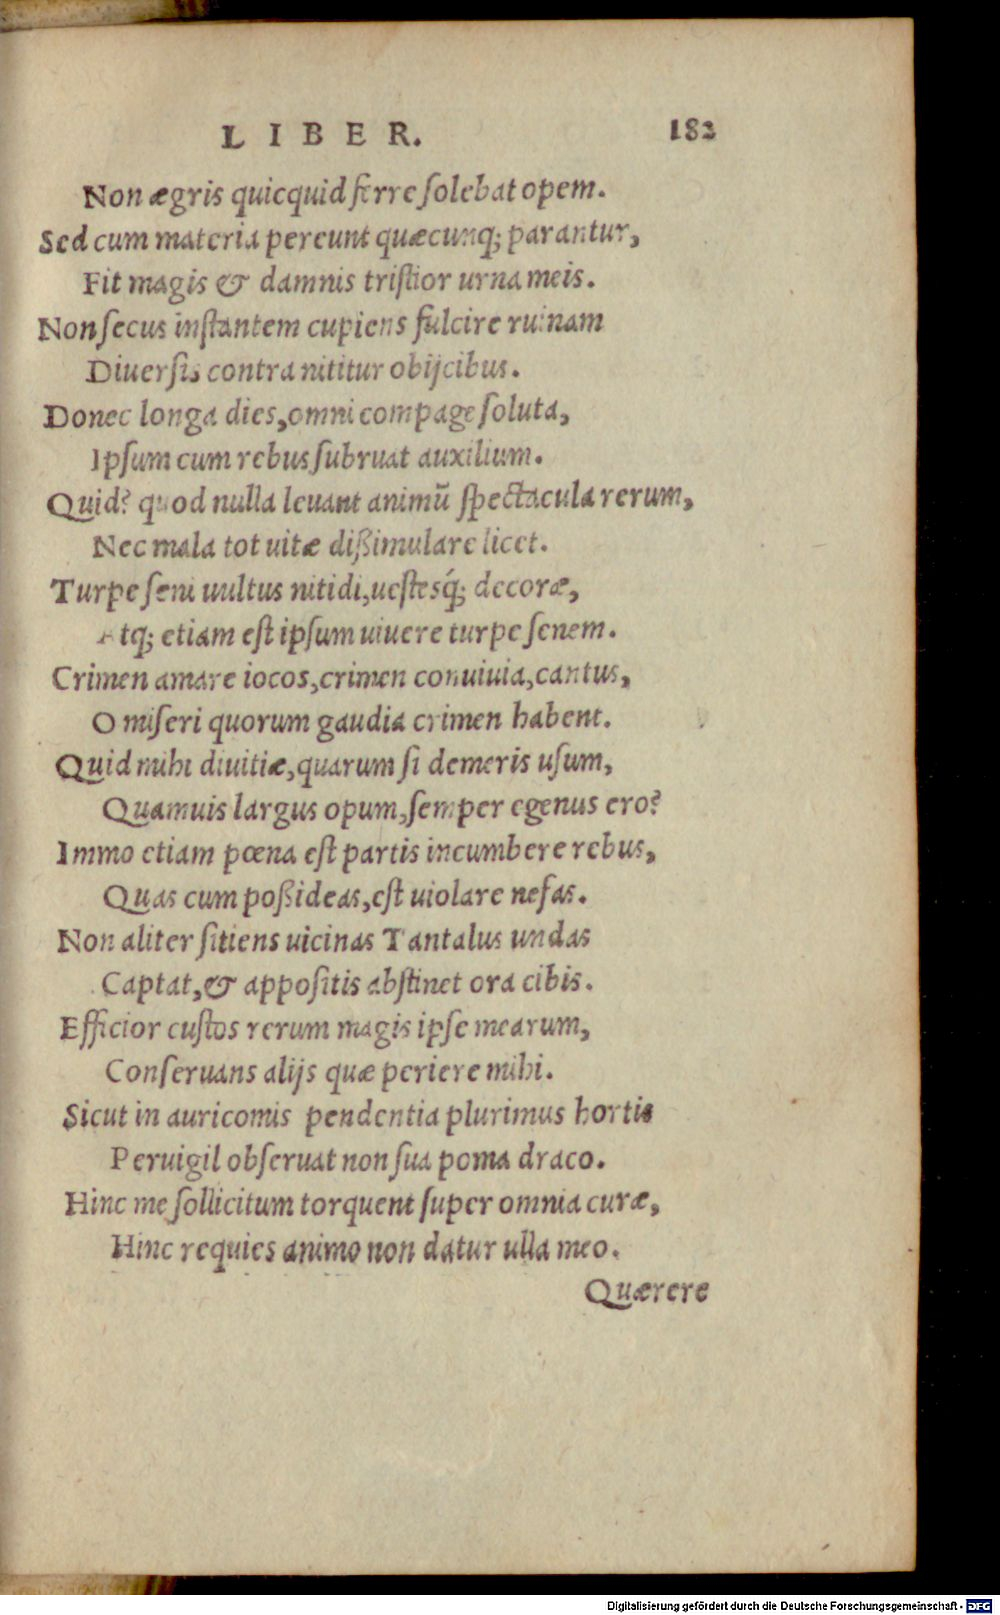 LIBER. 182
Non ægris quicquid ferre ſolebat opem.
Sed cum materia pereunt quæcunq; parantur,
Fit magis & damnis triſtior urna meis.
Non ſecus inſtantem cupiens fulcire ruinam
Diuerſis contra nititur obijcibus.
Donec longa dies, omni compage ſoluta,
Ipſum cum rebus ſubruat auxilium.
Quid? quod nulla leuant animū ſpectacula rerum,
Nec mala tot uitæ dißimulare licet.
Turpe ſeni uultus nitidi, ueſtesq́; decoræ,
Atq; etiam eſt ipſum uiuere turpe ſenem.
Crimen amare iocos, crimen conuiuia, cantus,
O miſeri quorum gaudia crimen habent.
Quid mihi diuitiæ, quarum ſi demeris uſum,
Quamuis largus opum, ſemper egenus ero?
Immo etiam pœna eſt partis incumbere rebus,
Quas cum poßideas, eſt uiolare nefas.
Non aliter ſitiens uicinas Tantalus undas
Captat, & appoſitis abſtinet ora cibis.
Efficior cuſtos rerum magis ipſe mearum,
Conſeruans alijs quæ periere mihi.
Sicut in auricomis pendentia plurimus hortis
Peruigil obſeruat non ſua poma draco.
Hinc me ſollicitum torquent ſuper omnia curæ,
Hinc requies animo non datur ulla meo.
Quærere
Digitalisierung gefördert durch die Deutsche Forschungsgemeinschaft - DFG